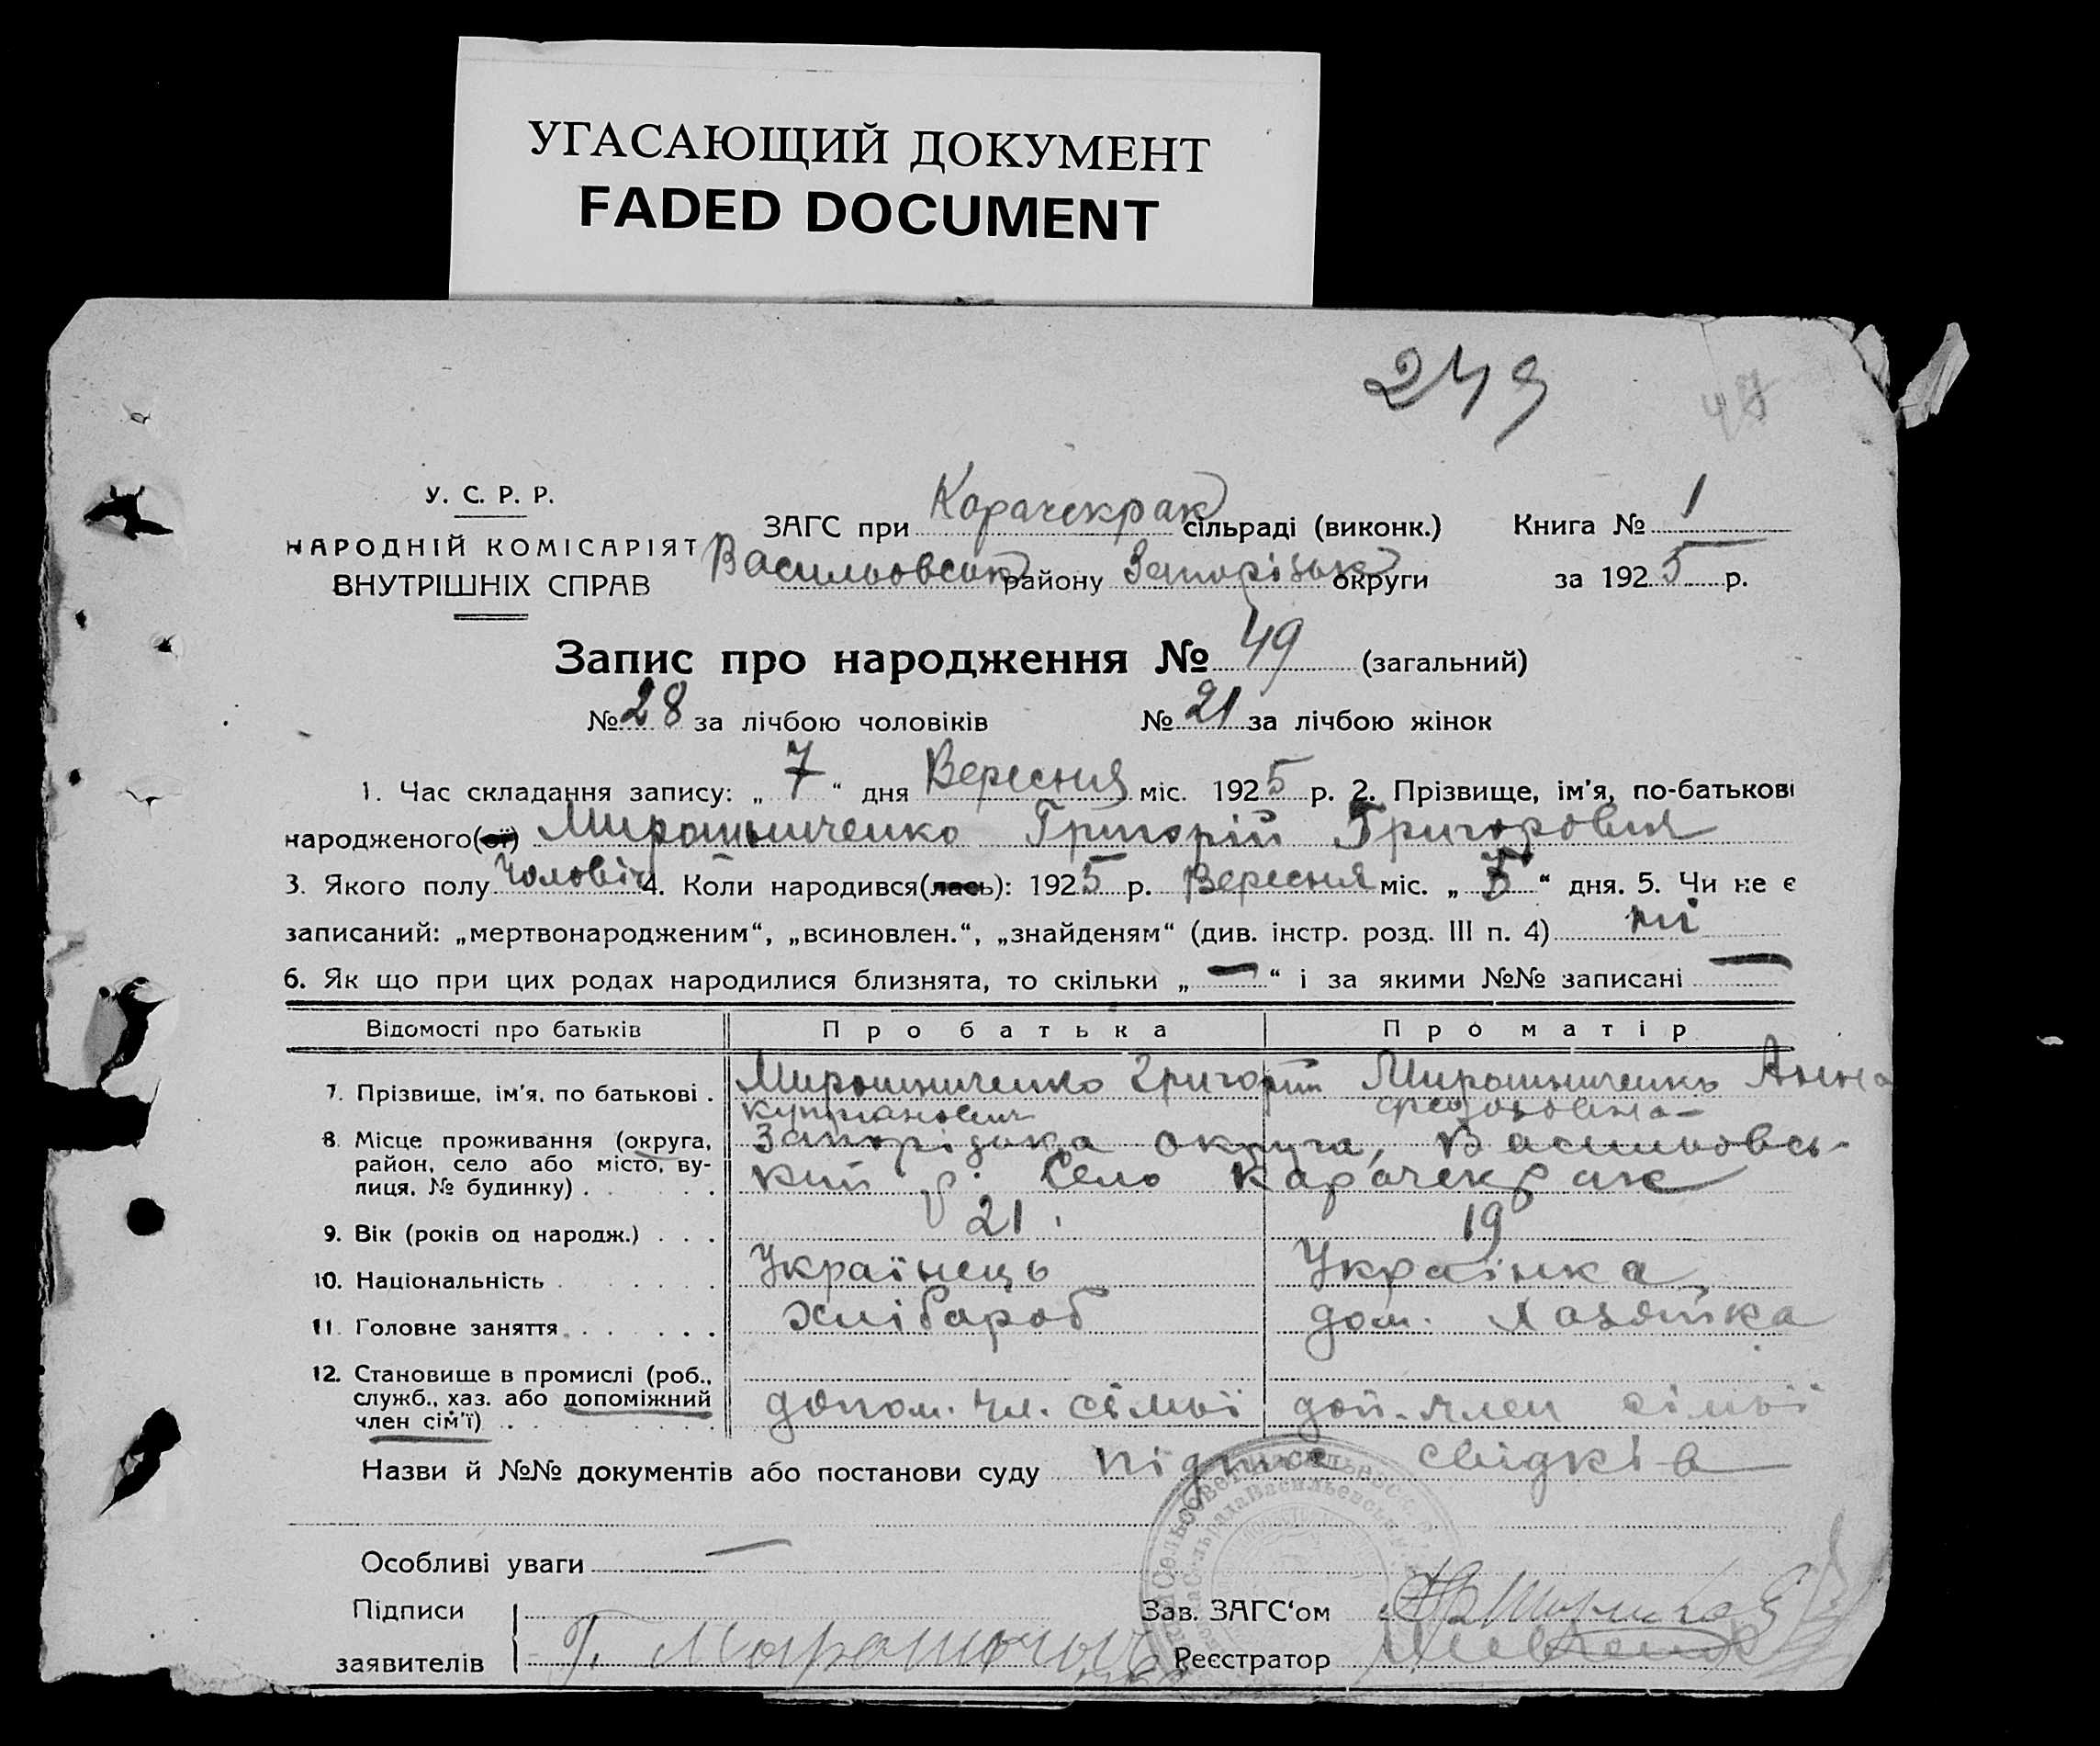 УГАСАЮЩИЙ ДОКУМЕНТ
FADED DOCUMENT
249
47
У. С. Р. Р.
НАРОДНІЙ КОМІСАРІЯТ
ВНУТРІШНІХ СПРАВ
ЗАГС при Карачекрак сільраді (виконк.) Книга № 1
Васильовськ району Запорізьк округи за 1925 р.
Запис про народження № 49 (загальний)
№ 28 за лічбою чоловіків № 21 за лічбою жінок
1. Час складання запису: „ 7 “ дня Вересня міс. 1925 р. 2. Прізвище, ім'я, по-батькові
народженого(ої) Мирошниченко Григорій Григоровия
3. Якого полу Чоловіч 4. Коли народився(лась): 1925 р. Вересня міс. „ 5 “ дня. 5. Чи не є
записаний: „мертвонародженим“, „всиновлен.“, „знайденям“ (див. інстр. розд. III п. 4) ні
6. Як що при цих родах народилися близнята, то скільки „ — “ і за якими №№ записані —
Відомості про батьків Про батька Про матір
7. Прізвище, ім'я, по батькові . Мирошниченко Григорій Мирошниченко Анна
8. Місце проживання (округа, район, село або місто, ву-
лиця, № будинку) . Запорізька округа, Васильовсь-
кий р. Село Карачекрак
9. Вік (років од народж.) . . . 21 19
10. Національність Українець Українка
11. Головне заняття Хлібароб дом. Хазяйка
12. Становище в промислі (роб., служб., хаз. або допоміжний
член сім'ї) допом. чл. сімьї доп. член сімьї
Назви й №№ документів або постанови суду підпис свідків
Особливі уваги —
Підписи
заявителів Г.
Зав. ЗАГС'ом
Реєстратор